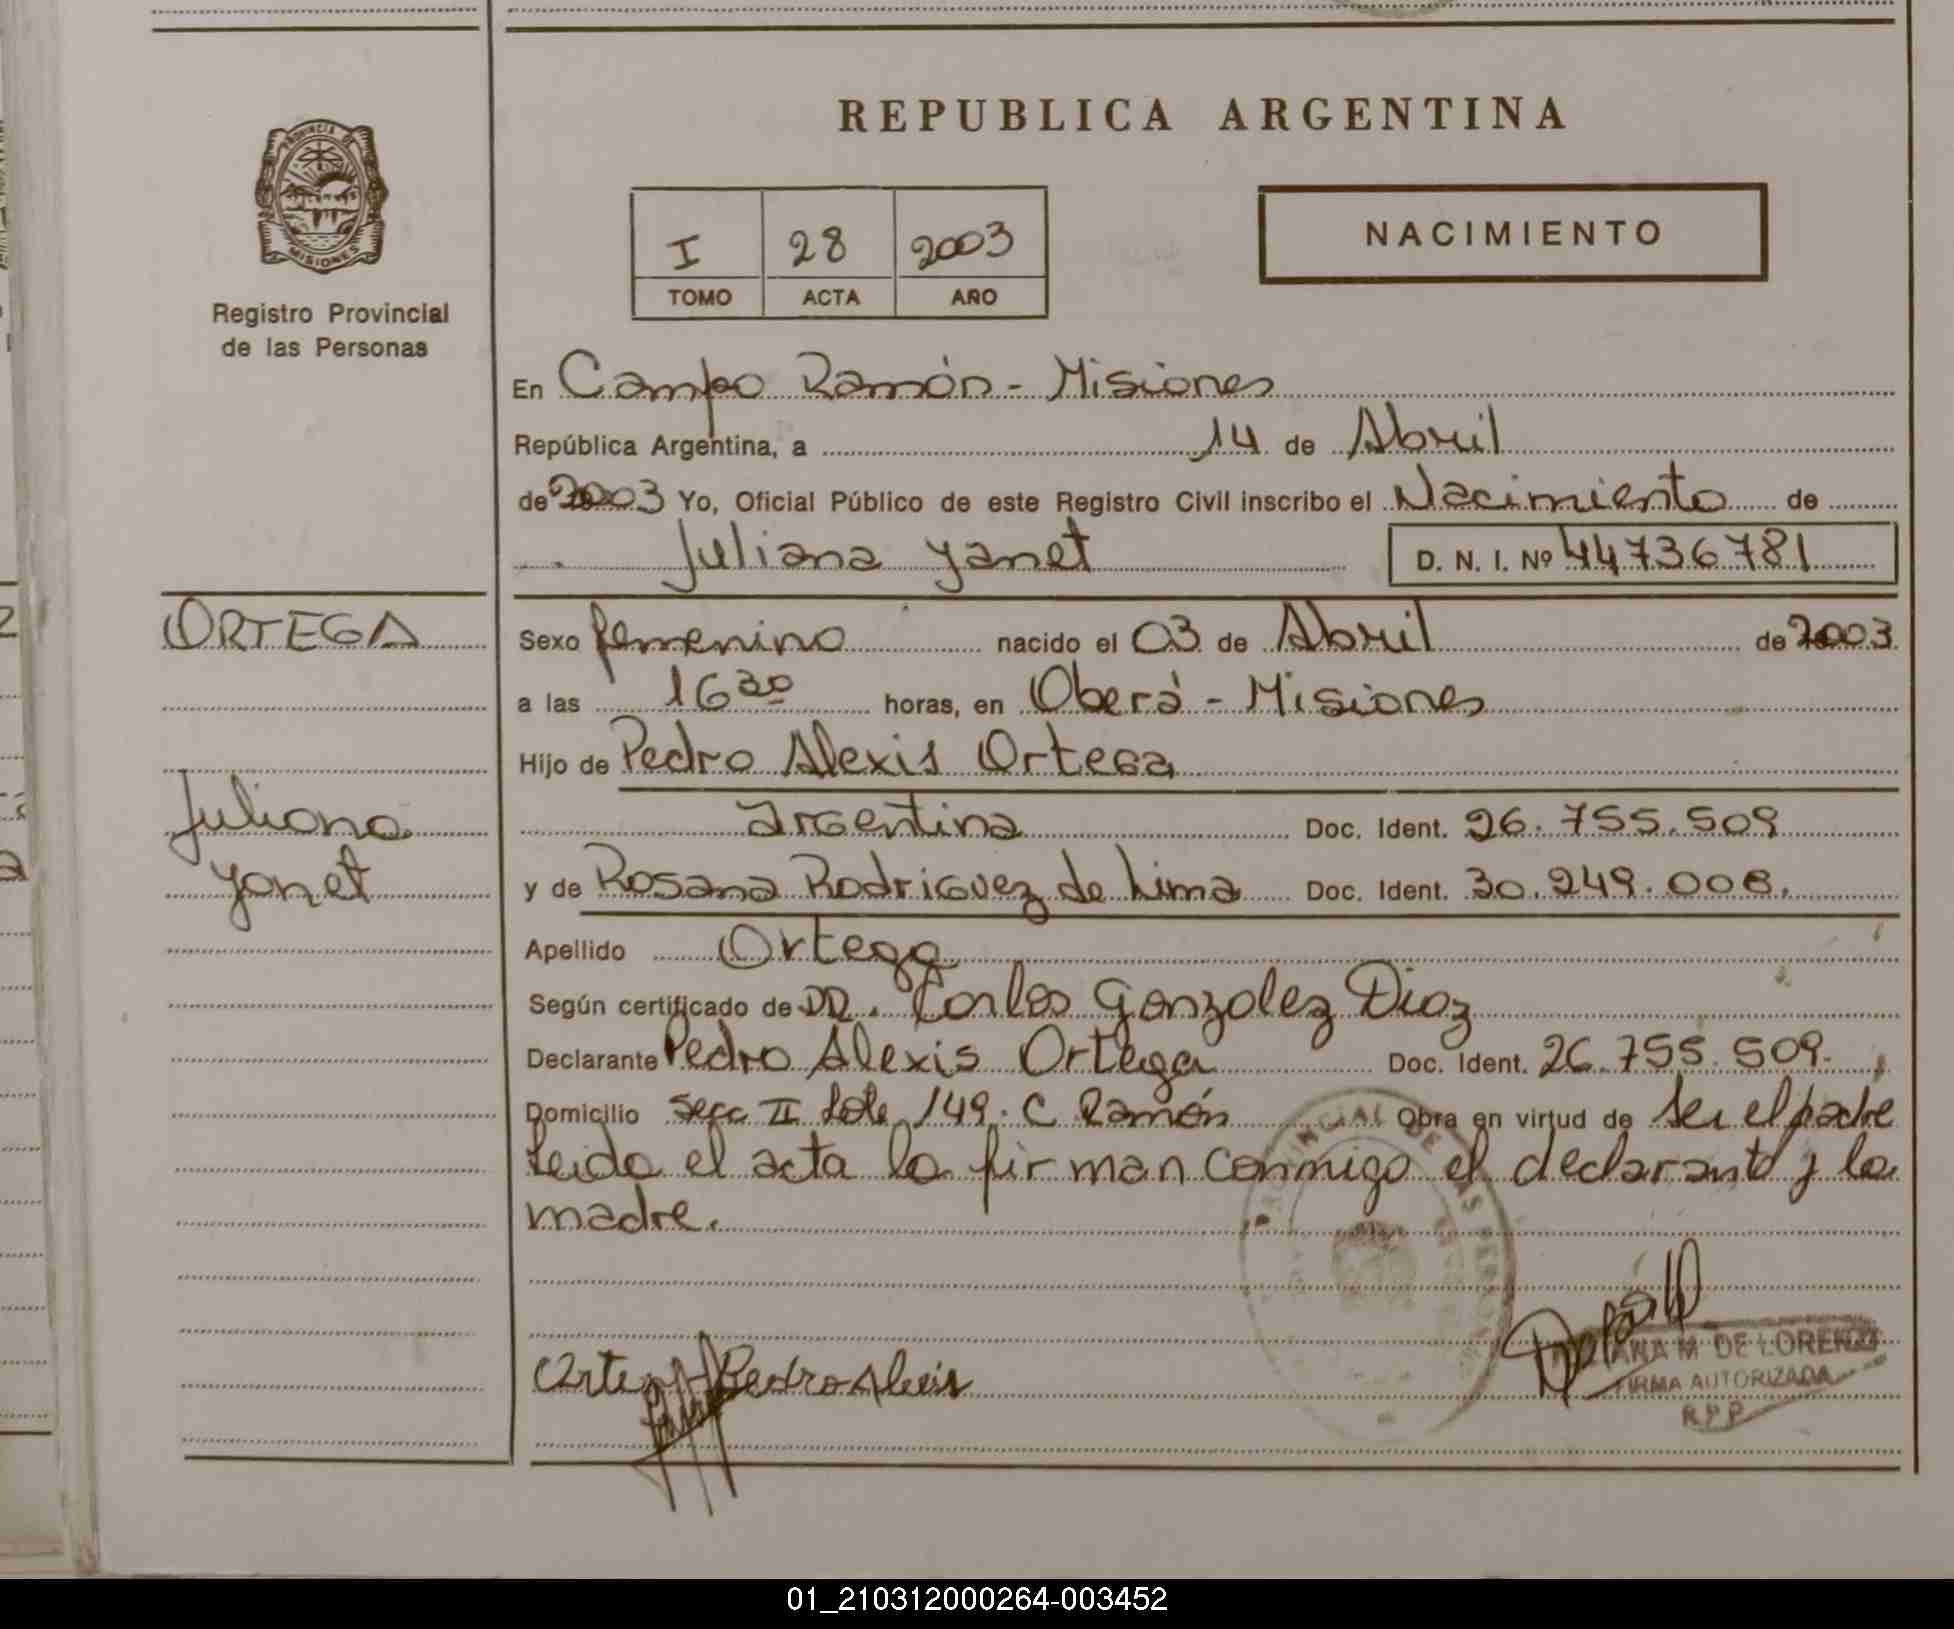 REPUBLICA ARGENTINA
PROVINCIA DE
MISIONES
Registro Provincial
de las Personas
I 28 2003
TOMO ACTA AÑO
NACIMIENTO
En Campo Ramón - Misiones
República Argentina, a 14 de Abril
de 2003 Yo, Oficial Público de este Registro Civil inscribo el Nacimiento de
Juliana Yanet D. N. I. Nº 44736781
ORTEGA
Juliana
Yanet
Sexo femenino nacido el 03 de Abril de 2003
a las 16 30 horas, en Oberá - Misiones
Hijo de Pedro Alexis Ortega
Argentina Doc. Ident. 26.755.509
y de Rosana Rodriguez de Lima Doc. Ident. 30.249.008.
Apellido Ortega
Según certificado de DR. Carlos Gonzalez Diaz
Declarante Pedro Alexis Ortega Doc. Ident. 26.755.509.
Domicilio Secc II Lote 149. C Ramón Obra en virtud de ser el padre
Leida el acta la firman conmigo el declarante y la
madre.
Ortega Pedro Alexis
ANA M DE LORENZI
FIRMA AUTORIZADA
R.P.P.
01_210312000264-003452